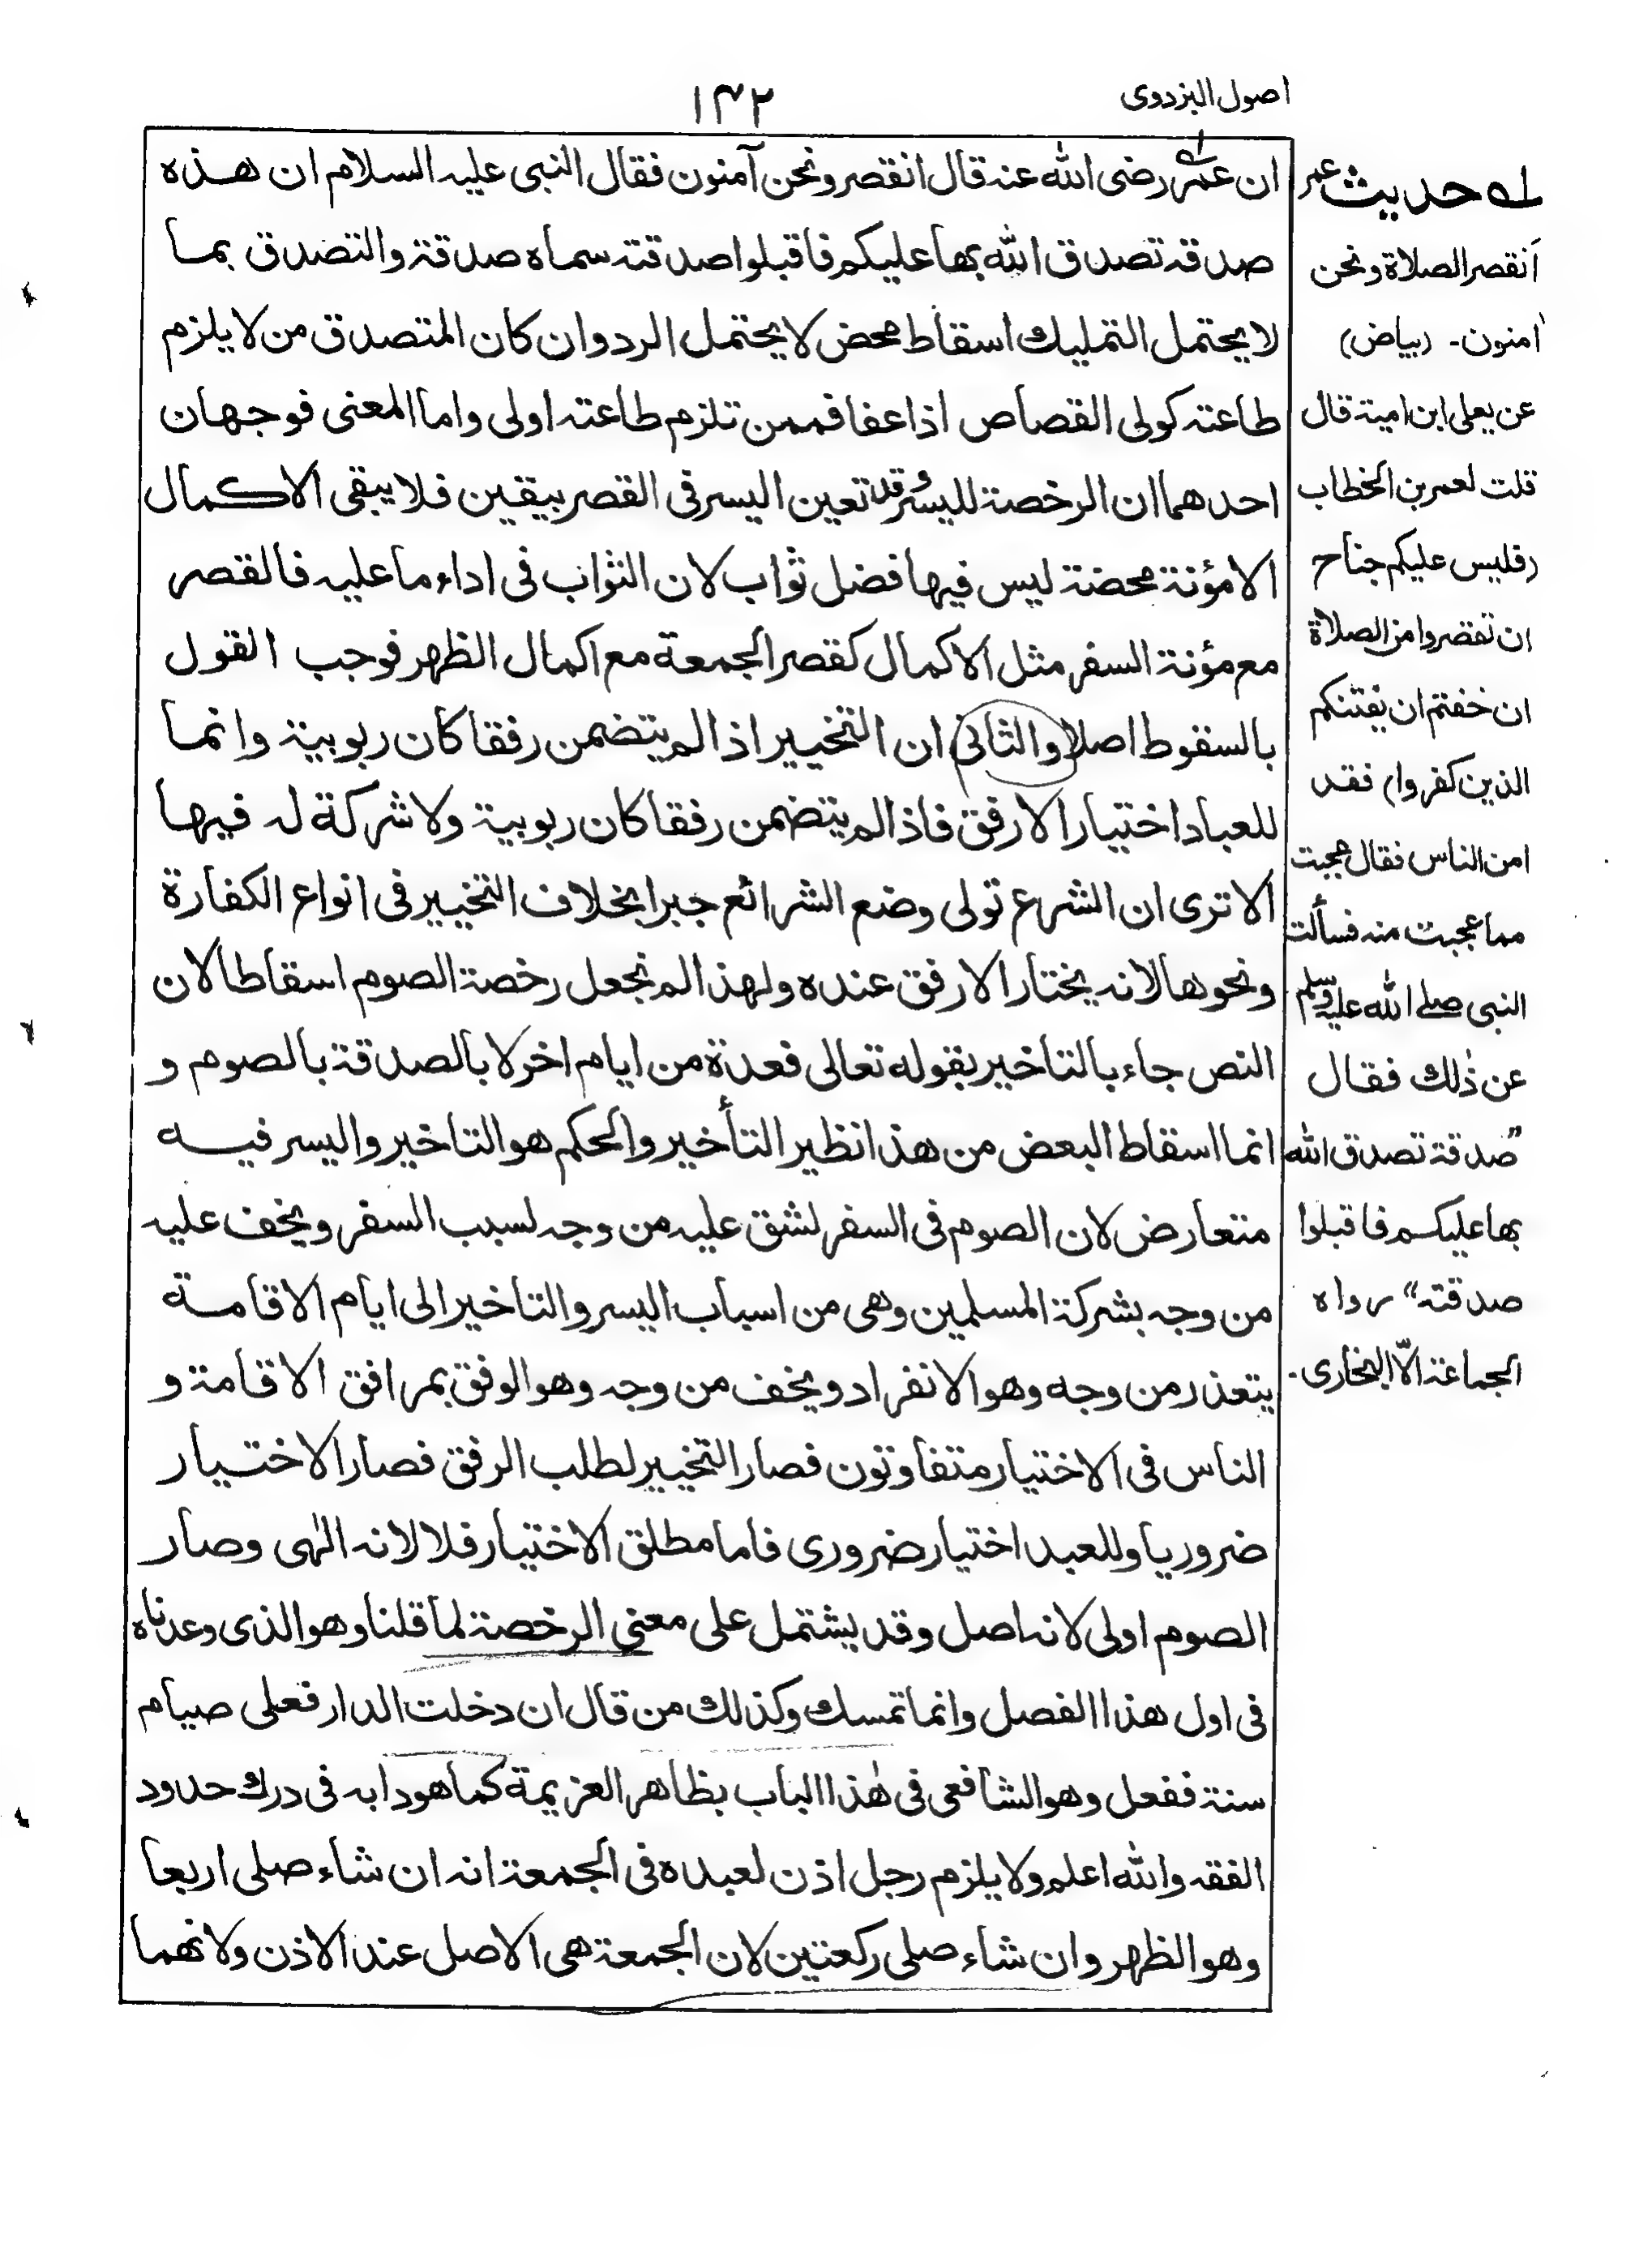 اصول البزدوی
۱۴۲
ان عمر رضی الله عنه قال انقصر ونحن آمنون فقال النبی علیه السلام ان هذه
صدقة تصدق الله بها علیکم فاقبلوا صدقته سماه صدقة والتصدق بما
لا یحتمل التملیك اسقاط محض لا یحتمل الرد وان کان المتصدق من لا یلزم
طاعته کولی القصاص اذا عفا فممن تلزم طاعته اولی واما المعنی فوجهان
احدهما ان الرخصة للیسر وقد تعین الیسر فی القصر بیقین فلا یبقی الاکمال
الا مؤنة محضة لیس فیها فضل ثواب لان الثواب فی اداء ما علیه فالقصر
مع مؤنة السفر مثل الاکمال کقصر الجمعة مع اکمال الظهر فوجب القول
بالسقوط اصلا والثانی ان التخییر اذا لم یتضمن رفقا کان ربوبیة وانما
للعباد اختیار الارفق فاذا لم یتضمن رفقا کان ربوبیة ولا شرکة له فیها
الا تری ان الشرع تولی وضع الشرائع جبرا بخلاف التخییر فی انواع الکفارة
ونحوها لانه یختار الارفق عنده ولهذا لم نجعل رخصة الصوم اسقاطا لان
النص جاء بالتاخیر بقوله تعالی فعدة من ایام اخر لا بالصدقة بالصوم و
انما اسقاط البعض من هذا نظیر التأخیر والحکم هو التاخیر والیسر فیه
متعارض لان الصوم فی السفر لشق علیه من وجه لسبب السفر ویخف علیه
من وجه بشرکة المسلمین وهی من اسباب الیسر والتاخیر الی ایام الاقامة
یتعذر من وجه وهو الانفراد ویخف من وجه وهو الوفق بمرافق الاقامة و
الناس فی الاختیار متفاوتون فصار التخییر لطلب الرفق فصار الاختیار
ضروریا وللعبد اختیار ضروری فاما مطلق الاختیار فلا لانه الٰهی وصار
الصوم اولی لانه اصل وقد یشتمل علی معنی الرخصة لما قلنا وهو الذی وعدناه
فی اول هذا الفصل وانما تمسك وکذلك من قال ان دخلت الدار فعلی صیام
سنة ففعل وهو الشافعی فی هٰذا الباب بظاهر العزیمة کما هو دابه فی درك حدود
الفقه والله اعلم ولا یلزم رجل اذن لعبده فی الجمعة انه ان شاء صلی اربعا
وهو الظهر وان شاء صلی رکعتین لان الجمعة هی الاصل عند الاذن ولانهما
لے حدیث عمر
أنقصر الصلاة ونحن
اٰمنون۔ (بیاض)
عن یعلی ابن امیة قال
قلت لعمر بن الخطاب
(فلیس علیکم جناح
ان تقصروا من الصلاة
ان خفتم ان یفتنکم
الذین کفروا) فقد
امن الناس فقال عجبت
مما عجبت منه فسألت
النبی صلے الله علیه وسلم
عن ذٰلك فقال
”صدقة تصدق الله
بها علیکم فاقبلوا
صدقته“ رواه
الجماعة الّا البخاری۔